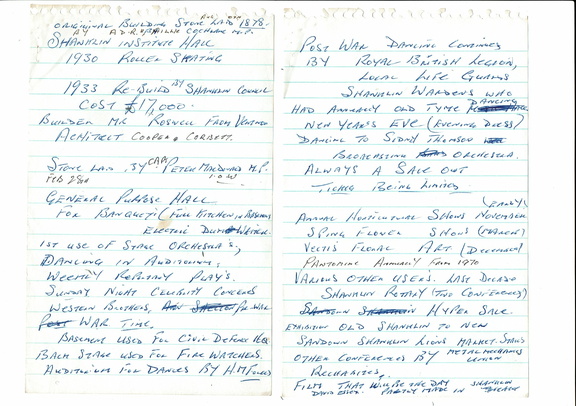 ORIGINAL BUILDING STONE LAID 1878.
BY A.D.R. BAILLIE COCHRANE M.P.
SHANKLIN INSTITUTE HALL
1930 ROLLER SKATING
1933 RE-BUILD BY SHANKLIN COUNCIL
COST £17,000.
BUILDER MR ROSWELL FROM VENTNOR
ARCHITECT COOPER & CORBETT.
STONE LAID BY CAP. PETER MACDONALD M.P.
FEB 28th I.O.W
GENERAL PURPOSE HALL
FOR BANQUET (FULL KITCHEN IN BASEMENT
ELECTRIC WASHER.
1ST USE OF STAGE ORCHESTRA'S,
DANCING IN AUDITORIUM.
WEEKLY REPORTORY PLAY'S.
SUNDAY NIGHT CELEBRITY CONCERTS
WESTERN BROTHERS, PRE-WAR
WAR TIME.
BASEMENT USED FOR CIVIL DEFENCE
BACK STAGE USED FOR FIRE WATCHERS.
AUDITORIUM FOR DANCES BY H.M FORCES
POST WAR DANCING CONTINUES
BY ROYAL BRITISH LEGION,
LOCAL LIFE GUARDS
SHANKLIN WARDENS WHO
HAD ANNUALLY OLD TYME DANCING
NEW YEAR'S EVE (EVENING DRESS)
DANCING TO SIDNY THOMSON
BROADCASTING ORCHESTRA.
ALWAYS A SALE OUT
TICKETS BEING LIMITED
ANNUAL HORTICULTURAL SHOWS NOVEMBER (EARLY)
SPING FLOWER SHOW'S (MARCH)
VECTIS FLORAL ART (DECEMBER)
PANTOMINE ANNUALLY FROM 1970
VARIOUS OTHER USER'S. LAST DECADE
SHANKLIN ROTARY (TWO CONFERENCES)
HYPER SALE.
EXHIBITION OLD SHANKLIN TO NEW
SANDOWN SHANKLIN LIONS MARKET STALLS
OTHER CONFERENCES BY METAL MECHANICS UNION
RECHABITES,
FILM THAT WILL BE THE DAY SHANKLIN
DAVID ESSEX PARTLY MADE IN THEATRE